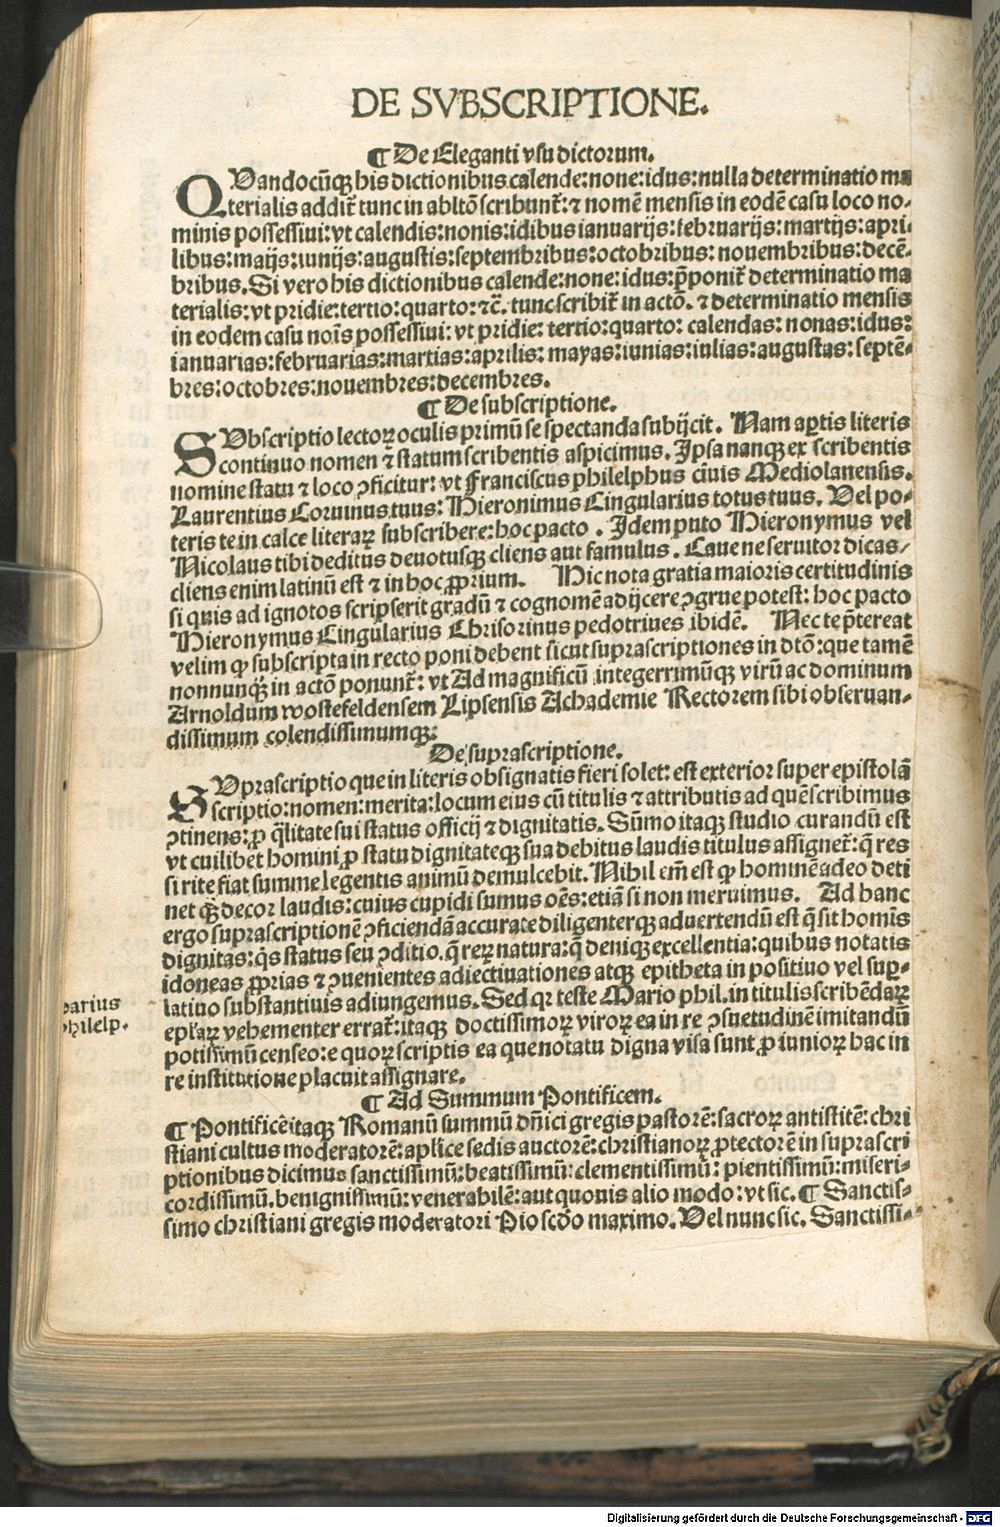 DE SVBSCRIPTIONE.
¶ De Eleganti vsu dictorum.
QVandocūqꝫ his dictionibus calende:none:idus:nulla determinatio ma
terialis addit᷑ tunc in abltō scribunt᷑:⁊ nomē mensis in eodē casu loco no-
minis possessiui:vt calendis:nonis:idibus ianuarijs:februarijs:martijs:apri-
libus:maijs:iunijs:augustis:septembribus:octobribus:nouembribus:decē-
bribus.Si vero his dictionibus calende:none:idus:p̄ponit᷑ determinatio ma
terialis:vt pridie:tertio:quarto:⁊c̄.tunc scribit᷑ in actō.⁊ determinatio mensis
in eodem casu noīs possessiui:vt pridie:tertio:quarto:calendas:nonas:idus:
ianuarias:februarias:martias:aprilis:mayas:iunias:iulias:augustas:septē-
bres:octobres:nouembres:decembres.
¶ De subscriptione.
SVbscriptio lectoꝝ oculis primū se spectanda subijcit. Nam aꝑtis literis
continuo nomen ⁊ statum scribentis aspicimus. Ipsa nanqꝫ ex scribentis
nomine statu ⁊ loco ꝯficitur:vt Franciscus philelphus ciuis Mediolanensis.
Laurentius Coruinus tuus:Hieronimus Cingularius totus tuus. Vel po-
teris te in calce literaꝝ subscribere:hoc pacto. Idem puto Hieronymus vel
Nicolaus tibi deditus deuotusqꝫ cliens aut famulus. Caue ne seruitor dicas/
cliens enim latinū est ⁊ in hoc ꝓprium. Hic nota gratia maioris certitudinis
si quis ad ignotos scripserit gradū ⁊ cognomē adijcere ꝯgrue potest:hoc pacto
Hieronymus Cingularius Chrisorinus pedotriues ibidē. Nec te p̄tereat
velim ꝙ subscripta in recto poni debent sicut suprascriptiones in dtō:que tamē
nonnunqꝫ̄ in actō ponunt᷑:vt Ad magnificū integerrimūqꝫ virū ac dominum
Arnoldum wostefeldensem Lipsensis Achademie Rectorem sibi obseruan-
dissimum colendissimumqꝫ:
De suprascriptione.
SVprascriptio que in literis obsignatis fieri solet:est exterior super epistolā
scriptio:nomen:merita:locum eius cū titulis ⁊ attributis ad quē scribimus
ꝯtinens:ꝓ q̄litate sui status officij ⁊ dignitatis.Sūmo itaqꝫ studio curandū est
vt cuilibet homini ꝓ statu dignitateqꝫ sua debitus laudis titulus assignet᷑:q̄ res
si rite fiat summe legentis animū demulcebit.Nihil em̄ est ꝙ hominē adeo deti
net qꝫ̄ decor laudis:cuius cupidi sumus oēs:etiā si non meruimus. Ad hanc
ergo suprascriptionē ꝯficiendā accurate diligenterqꝫ aduertendū est q̄ sit homīs
dignitas:q̄s status seu ꝯditio.q̄ reꝝ natura:q̄ deniqꝫ excellentia:quibus notatis
idoneas ꝓprias ⁊ ꝯuenientes adiectiuationes atqꝫ epitheta in positiuo vel suꝑ-
latiuo substantiuis adiungemus.Sed qꝛ teste Mario phil.in titulis scribēdaꝝ
ep̄laꝝ vehementer errat᷑:itaqꝫ doctissimoꝝ viroꝝ ea in re ꝯsuetudinē imitandū
potissimū censeo:e quoꝝ scriptis ea que notatu digna visa sunt ꝓ iunioꝝ hac in
re institutione placuit assignare.
arius
hilelp.
¶ Ad Summum Pontificem.
¶ Pontificē itaqꝫ Romanū summū dn̄ici gregis pastorē:sacroꝝ antistitē:chri
stiani cultus moderatorē:aplīce sedis auctorē:christianoꝝ ꝓtectorē in suprascri
ptionibus dicimus sanctissimū:beatissimū:clementissimū:pientissimū:miseri-
cordissimū.benignissimū:venerabilē:aut quouis alio modo:vt sic.¶ Sanctis-
simo christiani gregis moderatori Pio scd̄o maximo.Vel nunc sic. Sanctissi-
Digitalisierung gefördert durch die Deutsche Forschungsgemeinschaft - DFG